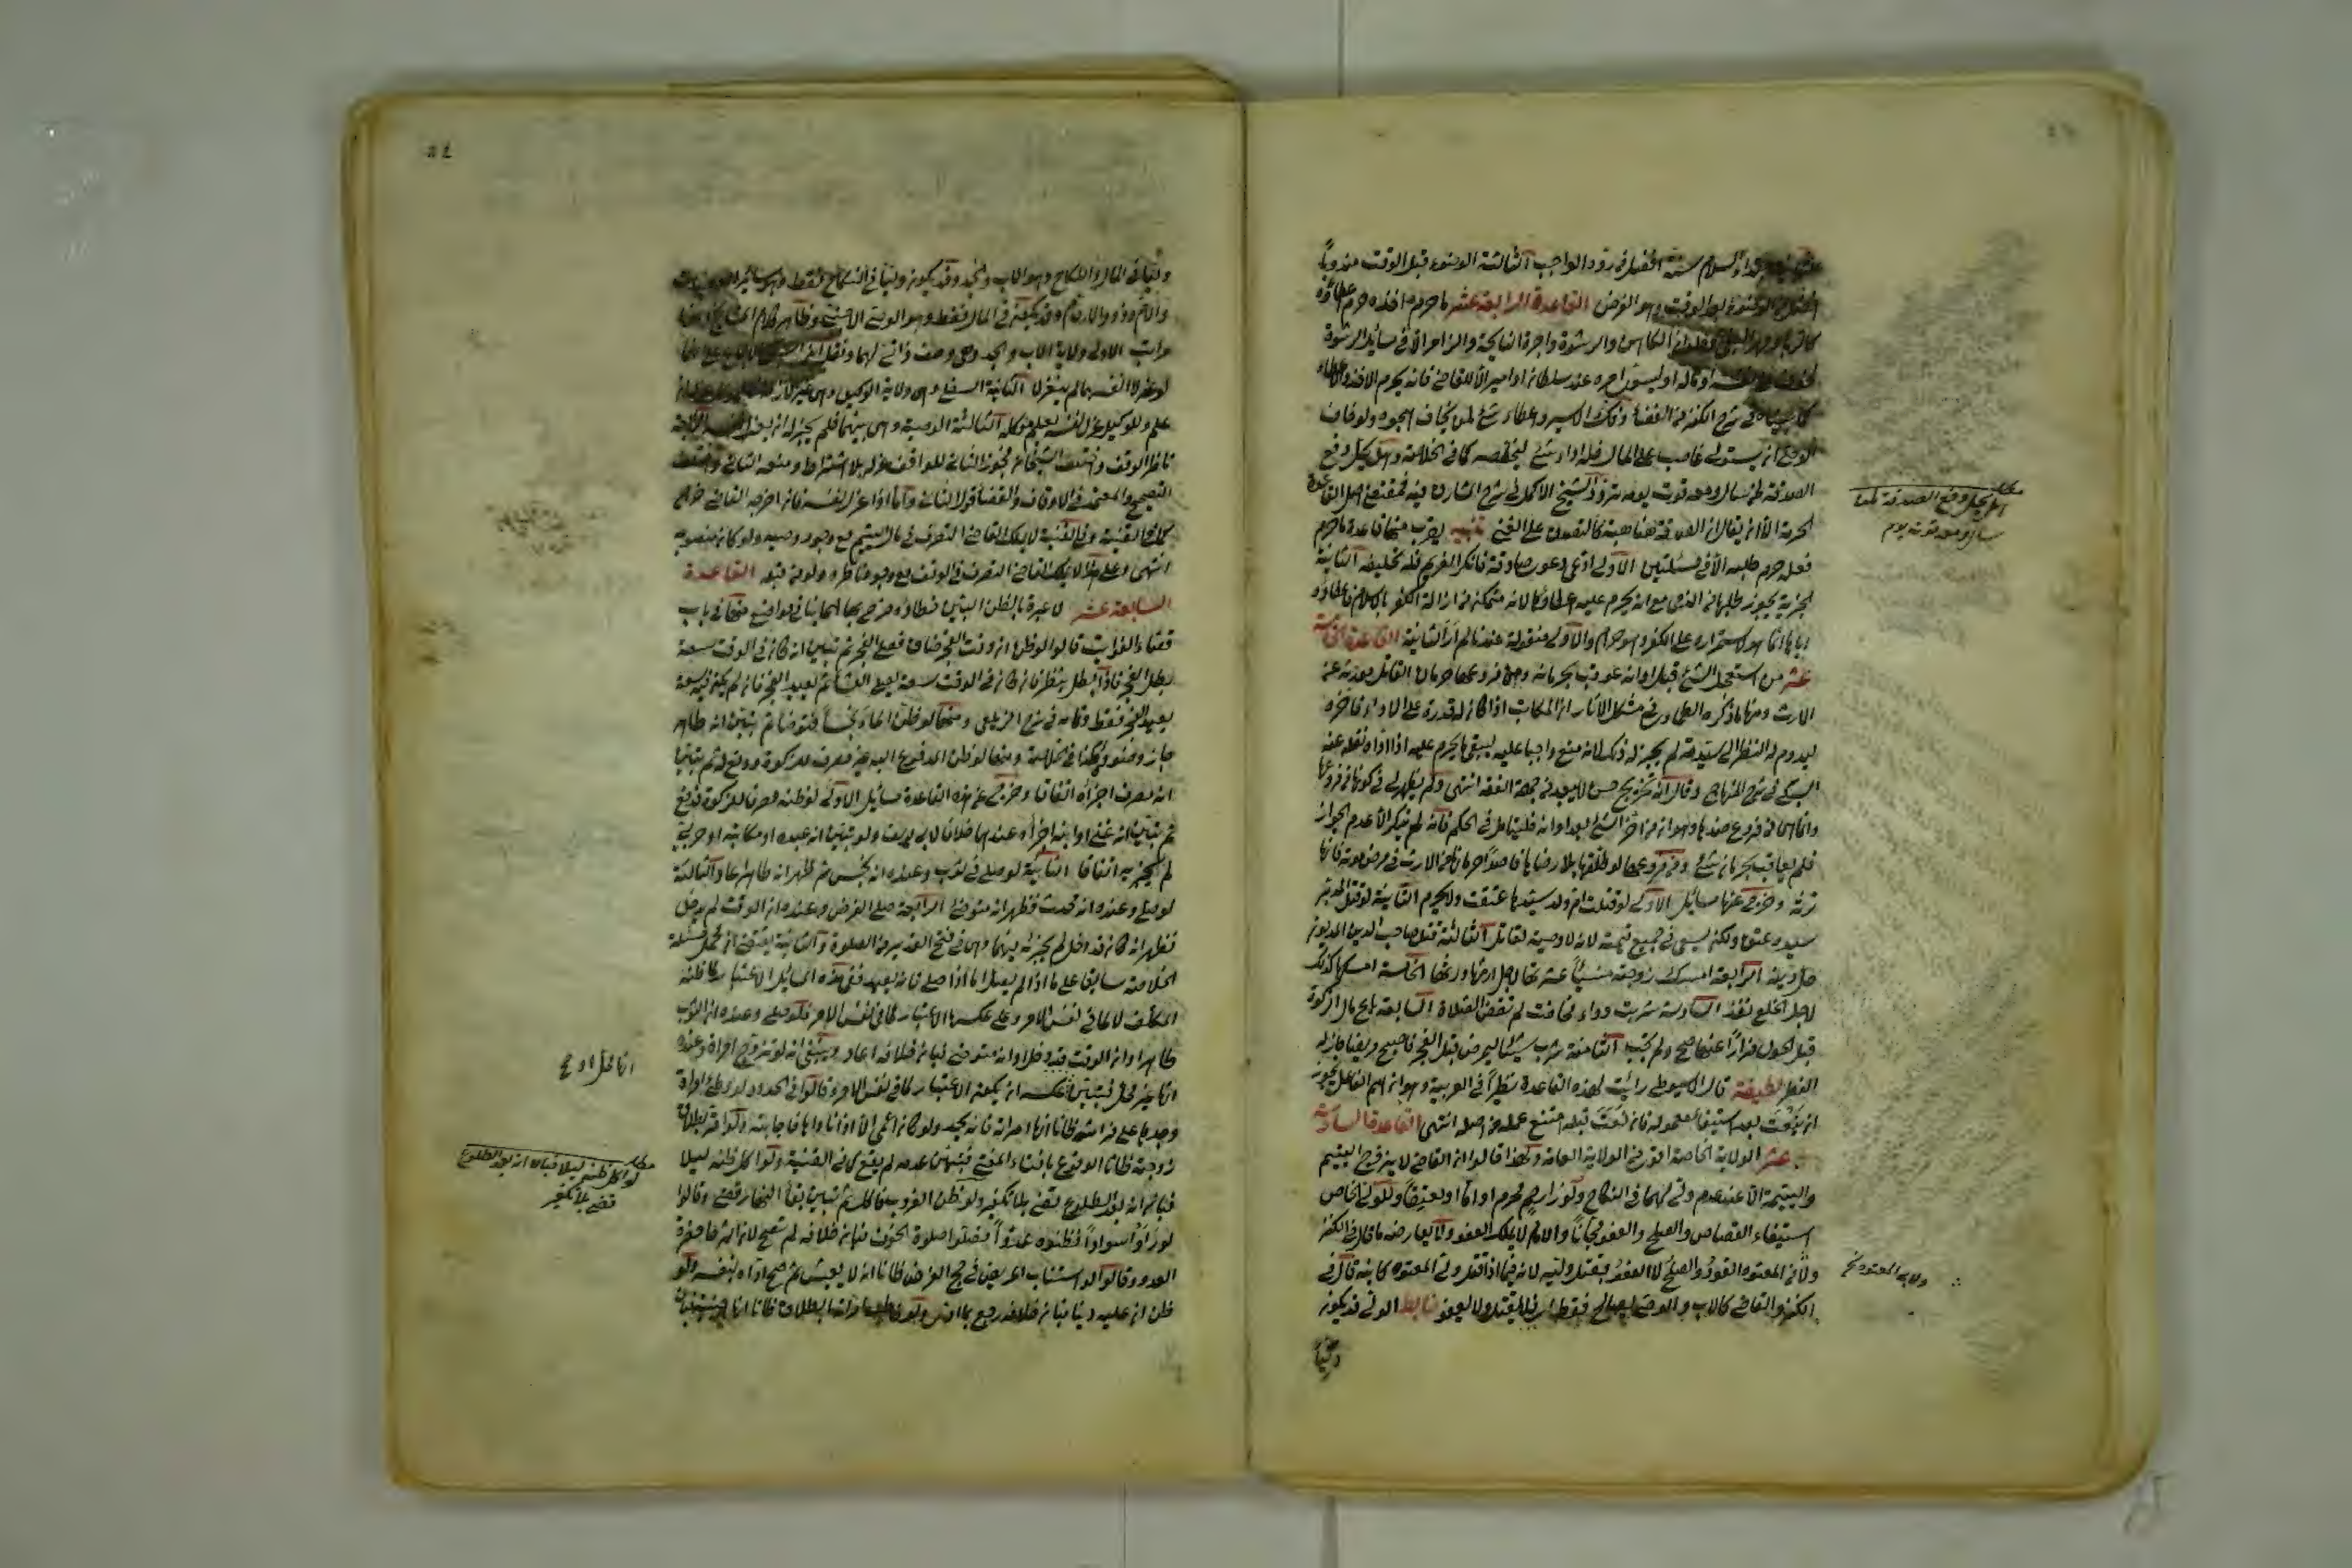 السلام سنة افضل من رد الواجب الثالثة الوضوء قبل الوقت مندوبا
افضل من الوضوء بعد الوقت وهو الفرض القاعدة الرابعة عشر ما حرم اخذه حرم اعطاؤه
كالربا ومهر البغي وحلوان الكاهن والرشوة واجرة النايحة والزامر الا في مسائل الرشوة
لخوف على نفسه او ماله او ليسوي امره عند سلطان او امير الا للقاضي فانه يحرم الاخذ والاعطاء
كما بيناه في شرح الكنز من القضاء وفك الاسير واعطاء شئ لمن يخاف هجوه ولو خاف
الوصي ان يستولي غاصب على المال فله اداء شئ ليخلصه كما في الخلاصة وهل يحل دفع
الصدقة لمن سأل ومعه قوت يومه تردد الشيخ الاكمل في شرح المشارق فيه فمقتضى اصل القاعدة
الحرمة الا ان يقال ان الصدقة هنا هبة كالتصدق على الغني تنبيه يقرب منها قاعدة ما حرم
فعله حرم طلبه الا في مسئلتين الاولى ادعى دعوى صادقة فانكر الغريم فله تحليفه الثانية
الجزية يجوز طلبها من الذمي مع انه يحرم عليه اعطاؤها لانه متمكن من ازالة الكفر بالاسلام فاعطاؤه
اياها انما هو لاستمراره على الكفر وهو حرام والاولى منقولة عندنا لم ار الثانية القاعدة الخامسة
عشر من استعجل الشئ قبل اوانه عوقب بحرمانه ومن فروعها حرمان القاتل مورثه عن
الارث ومنها ما ذكره الطحاوي في مشكل الآثار ان المكاتب اذا كان له قدرة على الاداء فاخره
ليدوم له النظر الى سيدته لم يجز له ذلك لانه منع واجبا عليه ليبقى ما يحرم عليه اذا اداه نقله عنه
السبكي في شرح المنهاج وقال انه تخريج حسن لا يبعد من جهة الفقه انتهى ولم يظهر لي في كونها من فروعها
وانما هي من فروع ضدها وهو ان من اخر الشئ بعد اوانه فليتامل في الحكم فانه لم يذكر الا عدم الجواز
فلم يعاقب بحرمان شئ ومن فروعها لو طلقها بلا رضاها قاصدا حرمانها من الارث في مرض موته فانها
ترثه وخرج عنها مسائل الاولى لو قتلت ام ولد سيدها عتقت ولا تحرم الثانية لو قتل المدبر
سيده عتق ولكن يسعى في جميع قيمته لانه لا وصية لقاتل الثالثة قتل صاحب الدين المديون
حل دينه الرابعة امسك زوجته مسيئا عشرتها لاجل ارثها ورثها الخامسة امسكها كذلك
لاجل الخلع نفذ السادسة شربت دواء فحاضت لم تقض الصلاة السابعة باع مال الزكوة
قبل الحول فرارا عنها صح ولم تجب الثامنة شرب شيئا ليمرض قبل الفجر فاصبح مريضا جاز له
الفطر لطيفة قال السيوطي رايت لهذه القاعدة نظيرا في العربية وهو ان اسم الفاعل يجوز
ان ينعت بعد استيفاء معموله فان نعت قبله امتنع عمله من اصله انتهى القاعدة السادسة
عشر الولاية الخاصة اقوى من الولاية العامة ولهذا قالوا ان القاضي لا يزوج اليتيم
واليتيمة الا عند عدم ولي لهما في النكاح ولو ذا رحم محرم او اما او معتقا وللولي الخاص
استيفاء القصاص والصلح والعفو مجانا والامام لا يملك العفو ولا يعارضه ما قال في الكنز
ولاب المعتوه القود والصلح لا العفو بقتل وليه لانه فيما اذا قتل ولي المعتوه كابنه قال في
الكنز والقاضي كالاب والوصي يصالح فقط اي فلا يقتل ولا يعفو ضابط الولي قد يكون
وليا
مطلب هل يحل دفع الصدقة لمن
سأل ومعه قوت يوم
ولاية المعتوه
وليا في المال والنكاح وهو الاب والجد وقد يكون وليا في النكاح فقط وهو سائر العصبات
والام وذوو الارحام وقد يكون في المال فقط وهو الوصي الاجنبي وظاهر كلام المشايخ انها
مراتب الاولى ولاية الاب والجد وهي وصف ذاتي لهما ونقل ابن السبكي الاجماع على انهما
لو عزلا انفسهما لم ينعزلا الثانية السفلى وهي ولاية الوكيل وهي غير لازمة
علم وللوكيل عزل نفسه بعلم موكله الثالثة الوصية وهي بينهما فلم يجز له ان يعزل نفسه الرابعة
ناظر الوقف واختلف الشيخان فجوز الثاني للواقف عزله بلا اشتراط ومنعه الثالث واختلف
التصحيح والمعتمد في الاوقاف والقضاء قول الثاني واما اذا عزل نفسه فان اخرجه القاضي خرج
كما في القنية وفي القنية لا يملك القاضي التصرف في مال اليتيم مع وجود وصيه ولو كان منصوبه
انتهى وعلى هذا لا يملك القاضي التصرف في الوقف مع وجود ناظره ولو من قبله القاعدة
السابعة عشر لا عبرة بالظن البين خطاؤه صرح بها اصحابنا في مواضع منها في باب
قضاء الفوايت قالوا لو ظن ان وقت الفجر ضاق فصلى الفجر ثم تبين انه كان في الوقت سعة
بطل الفجر فاذا بطل ينظر فان كان في الوقت سعة يصلي العشاء ثم يعيد الفجر فان لم يكن فيه سعة
يعيد الفجر فقط وتمامه في شرح الزيلعي ومنها لو ظن الماء نجسا فتوضا به ثم تبين انه طاهر
جاز وضوؤه كذا في الخلاصة ومنها لو ظن المدفوع اليه غير مصرف للزكوة فدفع له ثم تبين
انه مصرف اجزاه اتفاقا وخرج عن هذه القاعدة مسائل الاولى لو ظنه مصرفا للزكوة فدفع
ثم تبين انه غني او ابنه اجزاه عندهما خلافا لابي يوسف ولو تبين انه عبده او مكاتبه او حربي
لم يجزيه اتفاقا الثانية لو صلى في ثوب وعنده انه نجس ثم ظهر انه طاهر اعاد الثالثة
لو صلى وعنده انه محدث فظهر انه متوضئ الرابعة صلى الفرض وعنده ان الوقت لم يدخل
فظهر انه كان قد دخل لم يجز له فيهما وهي في فتح القدير من الصلوة والثانية يقتضي ان تحمل مسئلة
الخلاصة سابقا على ما اذا لم يصل اما اذا صلى فانه يعيد ففي هذه المسائل الاعتبار لما ظنه
المكلف لا لما في نفس الامر وعلى عكسها الاعتبار لما في نفس الامر فلو صلى وعنده ان الثوب
طاهر او ان الوقت قد دخل او انه متوضئ فبان خلافه اعاد وينبغي انه لو تزوج امراة وعنده
انها غير محل فتبين عكسه ان يكون الاعتبار لما في نفس الامر وقالوا في الحدود لو وطئ امراة
وجدها على فراشه ظانا انها امراته فانه يحد ولو كان اعمى الا اذا ناداها فاجابته ولو اقر بطلاق
زوجته ظانا الوقوع بافتاء المفتي فتبين عدمه لم يقع كما في القنية ولو اكل ظنه ليلا
فبان انه بعد الطلوع قضى بلا تكفير ولو ظن الغروب فاكل ثم تبين بقاء النهار قضى وقالوا
لو راوا سوادا فظنوه عدوا فصلوا صلوة الخوف فبان خلافه لم تصح لان شرطها حضرة
العدو وقالوا لو استناب المريض في حج الفرض ظانا انه لا يعيش ثم صح اداه بنفسه ولو
ظن ان عليه دينا فبان خلافه رجع بما ادى ولو خاطب امراته بالطلاق ظانا انها اجنبية فبان
انها محل او ع
مطلب لو اكل ظنه ليلا فبان انه بعد الطلوع
قضى بلا تكفير